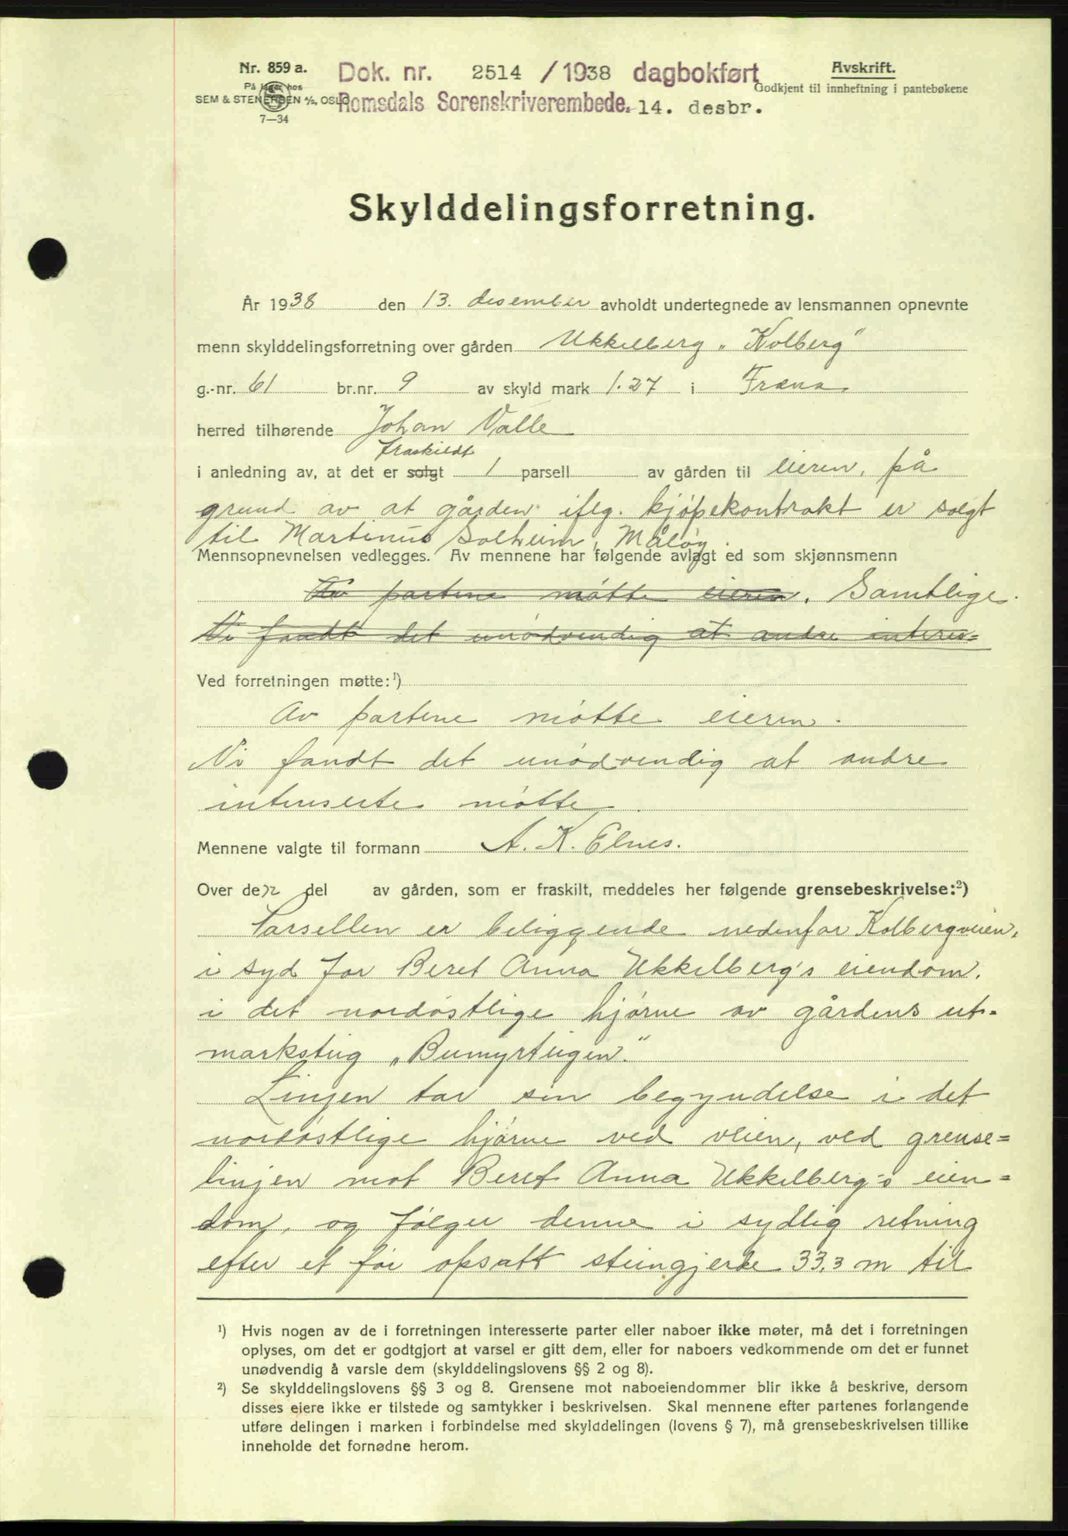 Nr. 859 a.
På lager hos
SEM & STENERSEN A/S, OSLO
7—34
Dok. nr. 2514 / 1938 dagbokført
Romsdals Sorenskriverembede. 14. desbr.
Avskrift.
Godkjent til innheftning i pantebøkene
Skylddelingsforretning.
År 1938 den 13. desember avholdt undertegnede av lensmannen opnevnte
menn skylddelingsforretning over gården Ukkelberg „Kolberg"
g.-nr. 61 br.nr. 9 av skyld mark 1.27 i Fræna
herred tilhørende Johan Valle
fraskildt
i anledning av, at det er solgt 1 parsell av gården til eieren, på
grund av at gården iflg. kjøpekontrakt er solgt
til Martinus Solheim, Måløy.
Mennsopnevnelsen vedlegges. Av mennene har følgende avlagt ed som skjønnsmenn
Av partene møtte eieren. Samtlige.
Vi fandt det unødvendig at andre interes=
Ved forretningen møtte: ¹)
Av partene møtte eieren.
Vi fandt det unødvendig at andre
interserte møtte
Mennene valgte til formann A. K. Elnes.
Over den del av gården, som er fraskilt, meddeles her følgende grensebeskrivelse: ²)
Parsellen er beliggende nedenfor Kolbergveien,
i syd for Beret Anna Ukkelberg's eiendom,
i det nordøstlige hjørne av gårdens ut-
marksteig „Bumyrteigen."
Linjen tar sin begyndelse i det
nordøstlige hjørne ved veien, ved grense=
linjen mot Beret Anna Ukkelberg's eien=
dom, og følger denne i sydlig retning
efter et før opsatt steingjerde 33,3 m til
¹) Hvis nogen av de i forretningen interesserte parter eller naboer ikke møter, må det i forretningen
oplyses, om det er godtgjort at varsel er gitt dem, eller for naboers vedkommende om det er funnet
unødvendig å varsle dem (skylddelingslovens §§ 2 og 8).
²) Se skylddelingslovens §§ 3 og 8. Grensene mot naboeiendommer blir ikke å beskrive, dersom
disses eiere ikke er tilstede og samtykker i beskrivelsen. Skal mennene efter partenes forlangende
utføre delingen i marken i forbindelse med skylddelingen (lovens § 7), må grensebeskrivelsen tillike
inneholde det fornødne herom.